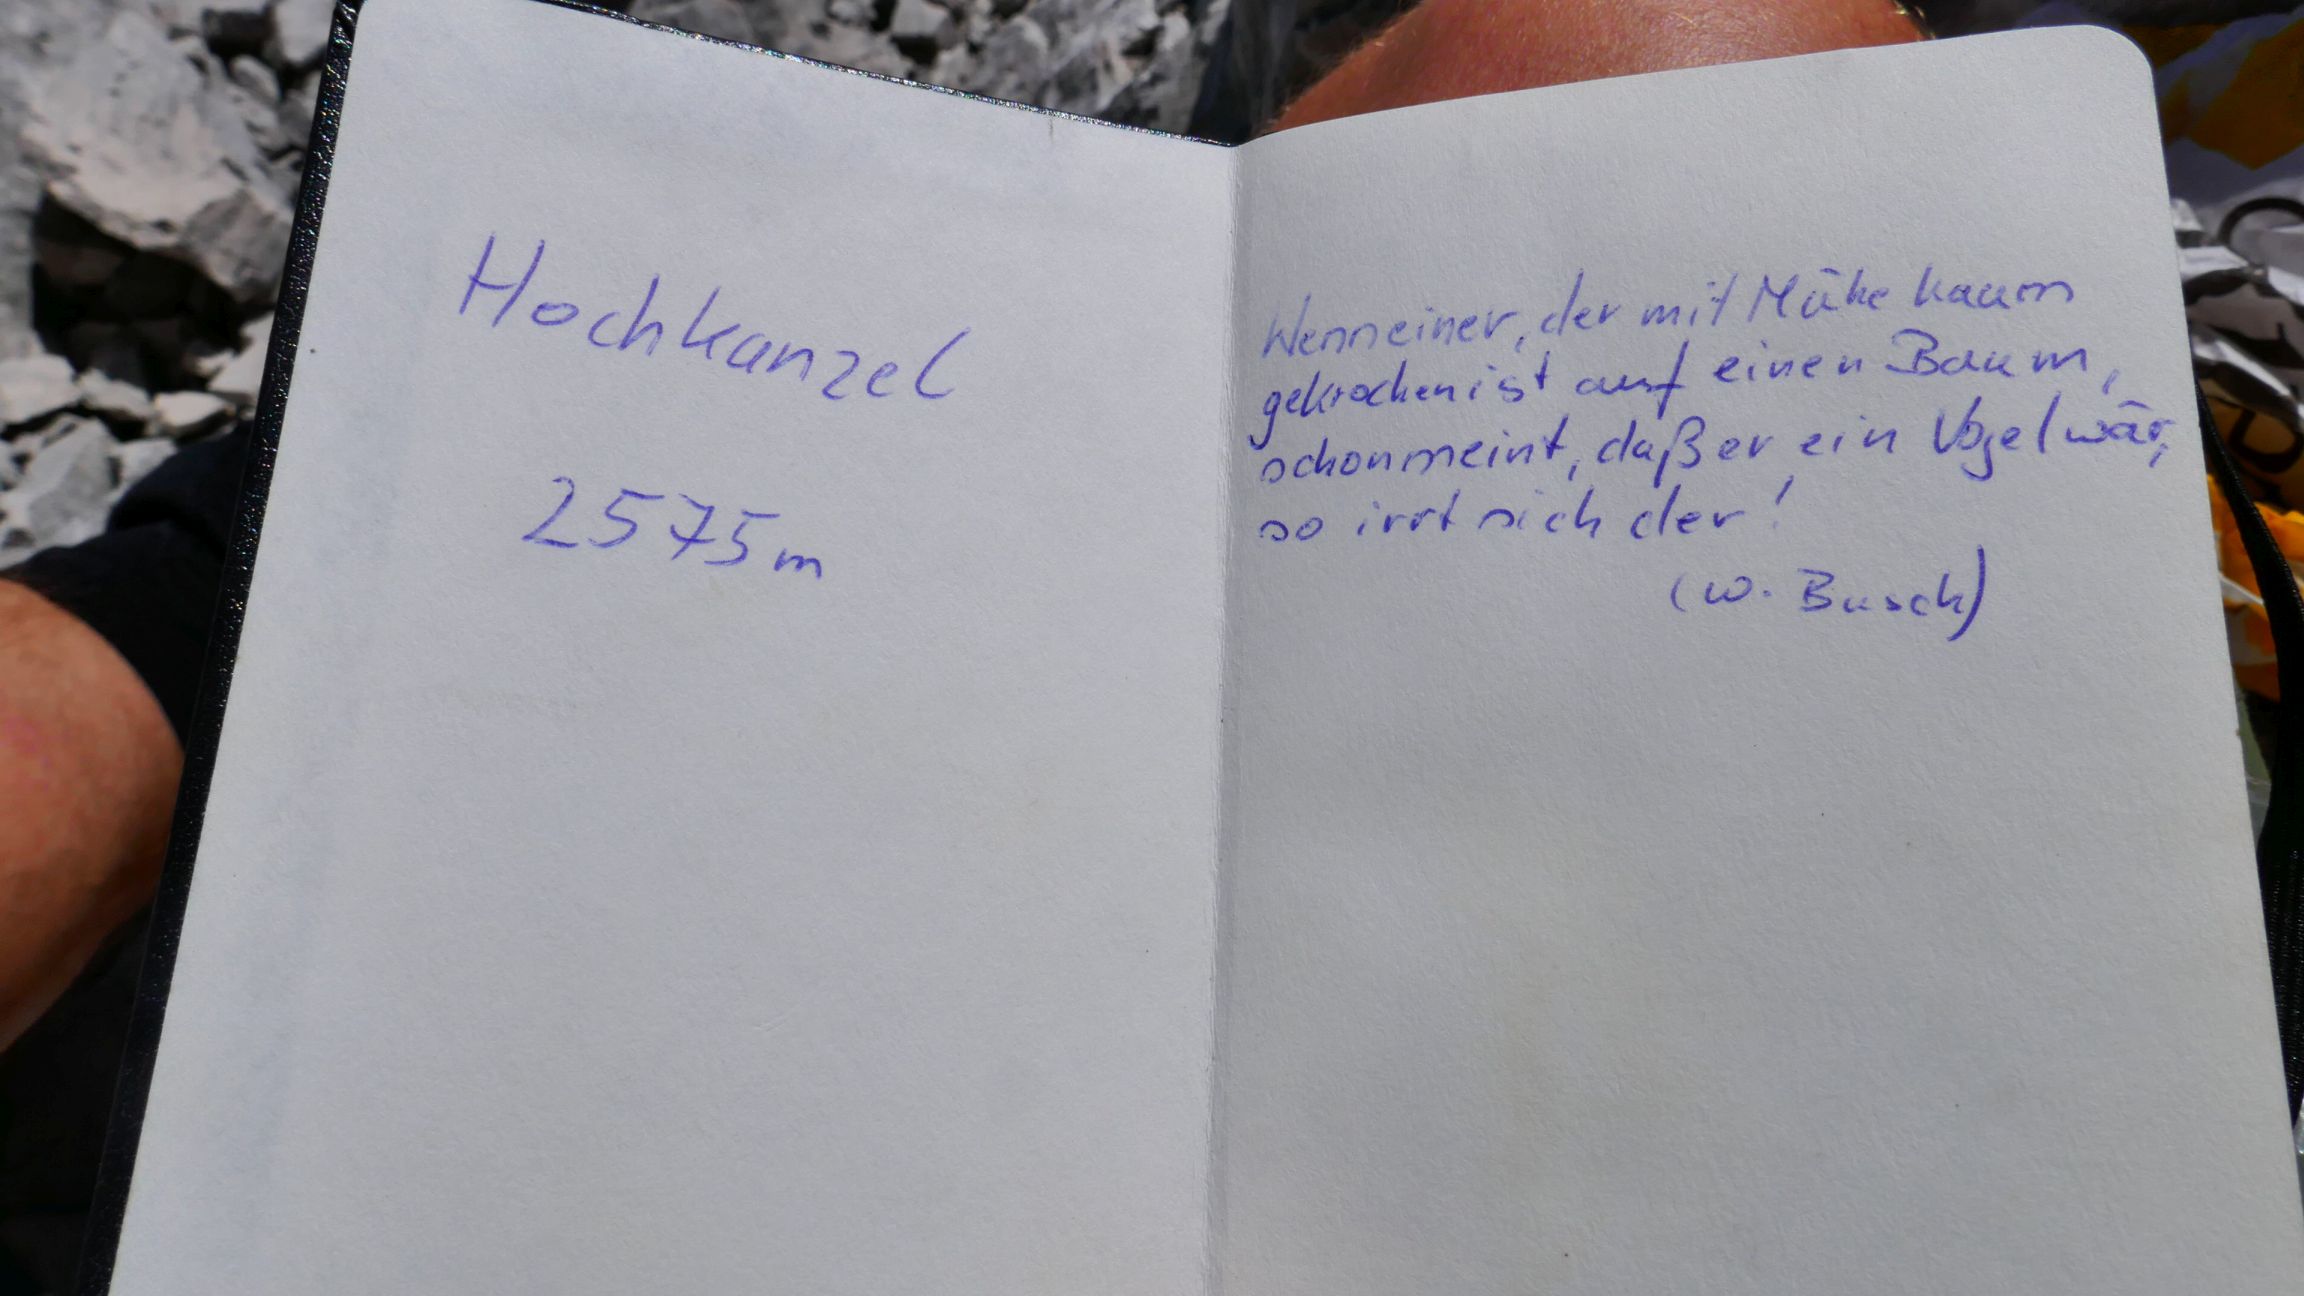 Hochkanzel
2575m
Wenn einer, der mit Mühe kaum
gekrochen ist auf einen Baum,
schon meint, daß er ein Vogel wär,
so irrt sich der!
(W. Busch)